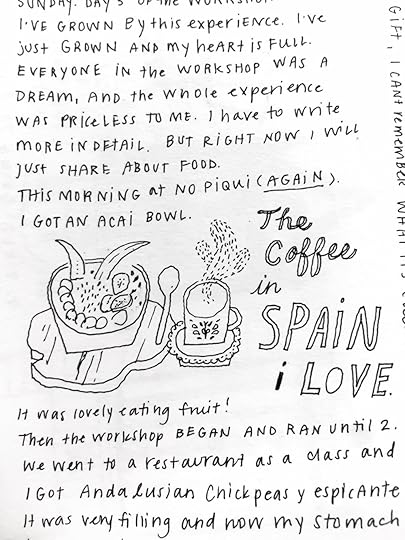 SUNDAY. DAY 5 OF the WORKSHOP.
I'VE GROWN By this experience. I've
just GROWN AND my heART is FULL.
EVERYONE IN the WORKSHOP WAS A
DREAM, AND the WHOLE experience
WAS PRICELESS TO ME. I have to WRITE
MORE IN DETAIL. BUT RIGHT NOW I WILL
JUST SHARE ABOUT FOOD.
THIS MORNING at NO PIQUI (AGAIN).
I GOT AN ACAI BOWL.
The
Coffee
in
SPAIN
i LOVE.
It was lovely eating fruit!
Then the workshop BEGAN AND RAN until 2.
We went to a restaurant as a class and
I Got Andalusian Chickpeas y espicante
It was very filling and now my stomach
GIFT, I CANT remember WHAT IT'S